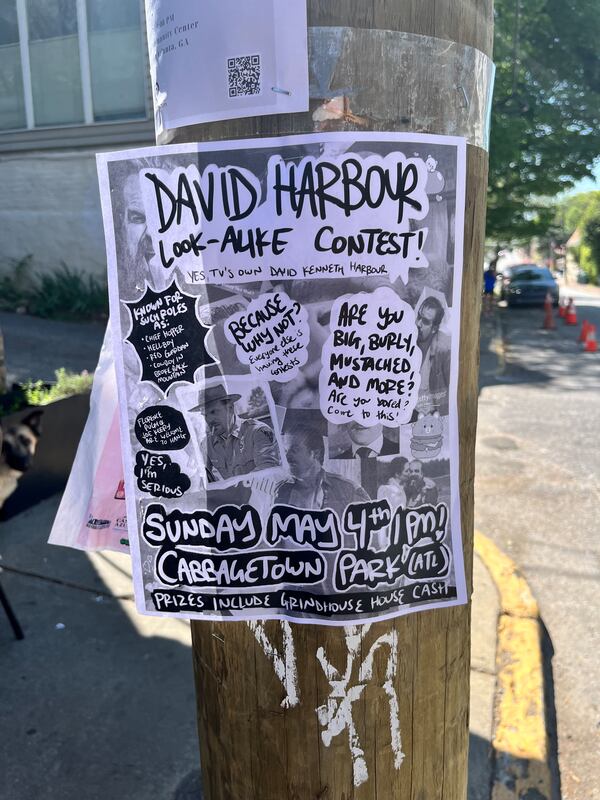 PM
Center
, GA
DAVID HARBOUR
LOOK-ALIKE CONTEST!
YES, TV'S OWN DAVID KENNETH HARBOUR
KNOWN FOR
SUCH ROLES
AS:
• CHIEF HOPPER
• HELLBOY
• RED GUARDIAN
• COWBOY IN
BROKEBACK
MOUNTAIN
BECAUSE
WHY NOT?
Everyone else is
having these
contests
ARE YOU
BIG, BURLY,
MUSTACHED,
AND MORE?
Are you bored?
Come to this!
FLORENCE
PUGH &
JOE KEERY
ARE WELCOME
TO HANG
YES,
I'M
SERIOUS
SUNDAY MAY 4th 1PM!
CABBAGETOWN PARK (ATL)
PRIZES INCLUDE GRINDHOUSE HOUSE CASH